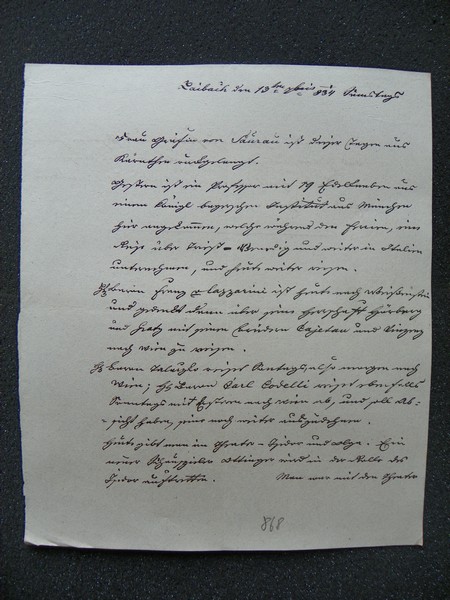 Laibach den 13ten 7bris 834 Samstags
Frau Gräfin von Saurau ist dieser Tage aus
Kärnthen rückgelangt.
Gestern ist ein Professor mit 19 Edelknaben aus
einem Königl bayrischen Institut aus München
hier angekommen, welche während den Ferien, eine
Reise über Triest – Venedig und weiter in Italien
unternehmen, und heute weiter reisen.
Hr Baron Franz v Lazzarini ist heute nach Weissenstein
und gedenkt dann über seine Herrschaft
und Gratz mit seinen Brüdern Cajetan und Vinzenz
nach Wien zu reisen.
Hr Baron reiset Sontags, also morgen nach
Wien; Hr Baron Carl Codelli reiset ebenfalls
Sonntags mit nach Wien ab, und soll Ab-
sicht haben, seine noch weiter auszudehnen.
Heute gibt man im Theater – Isidor und Olga. Ein
neuer Schauspieler Ottinger wird in der Rolle des
Isidor auftretten. Man war mit den Theater
868